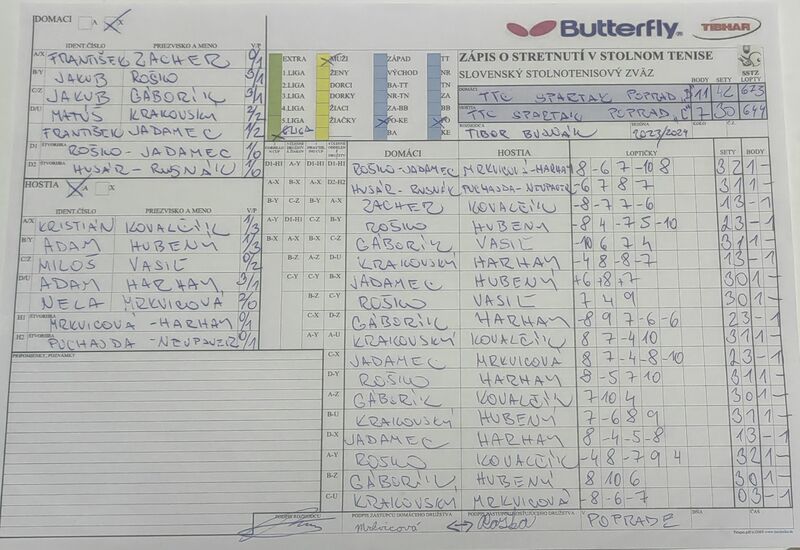 DOMACI A X
Butterfly
TIBHAR
IDENT.ČÍSLO PRIEZVISKO A MENO V/P
A/X FRANTIŠEK ZACHER 0/1
B/Y JAKUB ROŠKO 3/1
C/Z JAKUB GÁBORÍK 3/1
D/U MATÚŠ KRAKOVSKÝ 2/2
FRANTIŠEK JADAMEC
D1 ŠTVORHRA ROŠKO - JADAMEC 1/0
D2 HUSÁR - RUSNÁK 1/0
HOSTIA A X
IDENT.ČÍSLO PRIEZVISKO A MENO V/P
A/X KRISTIÁN KOVALČÍK 1/3
B/Y ADAM HUBENÝ 1/3
C/Z MILOŠ VASIĽ 0/2
D/U ADAM HARHAY 3/1
NELA MRKVICOVÁ 2/0
H1 ŠTVORHRA MRKVICOVÁ - HARHAY 0/1
H2 ŠTVORHRA PUCHAJDA - NEUPAVER 0/1
PRIPOMIENKY, POZNÁMKY
EXTRA MUŽI ZÁPAD TT
1.LIGA ŽENY VÝCHOD NR
2.LIGA DORCI BA-TT TN
3.LIGA DORKY NR-TN ZA
4.LIGA ŽIACI ZA-BB BB
5.LIGA ŽIAČKY PO-KE PO
6.LIGA BA KE
ZÁPIS O STRETNUTÍ V STOLNOM TENISE
SLOVENSKÝ STOLNOTENISOVÝ ZVÄZ
SSTZ
BODY SETY LOPTY
DOMÁCI TTC SPARTAK POPRAD "D" 11 42 673
HOSTIA TTC SPARTAK POPRAD "C" 7 30 644
ROZHODCA TIBOR SEZÓNA 2023/2024 KOLO Č.Z.
DOMÁCI HOSTIA LOPTIČKY SETY BODY
D1-H1 A-Y D1-H1 D1-H1 ROŠKO-JADAMEC MRKVICOVÁ-HARHAY 8 -6 7 -10 8 3 2 1 -
A-X B-X A-X D2-H2 HUSÁR - RUSNÁK PUCHAJDA-NEUPAVER -6 7 8 7 3 1 1 -
B-Y C-Z B-Y A-X ZACHER KOVALČÍK -8 -7 7 -6 1 3 - 1
A-Y D1-H1 C-Z B-Y ROŠKO HUBENÝ -8 4 -7 5 -10 2 3 - 1
B-X A-X B-X C-Z GÁBORÍK VASIĽ -10 6 7 4 3 1 1 -
B-Z A-Z D-U KRAKOVSKÝ HARHAY -4 8 -8 -7 1 3 - 1
C-Y C-Y B-X JADAMEC HUBENÝ +6 +8 +7 3 0 1 -
B-Z C-Y ROŠKO VASIĽ 7 4 9 3 0 1 -
C-X D-Z GÁBORÍK HARHAY -8 9 7 -6 -6 2 3 - 1
A-Y A-U KRAKOVSKÝ KOVALČÍK 8 7 -4 10 3 1 1 -
C-X JADAMEC MRKVICOVA 8 -7 4 -8 -10 2 3 - 1
D-Y ROŠKO HARHAY 8 -5 7 10 3 1 1 -
A-Z GÁBORÍK KOVALČÍK 7 10 4 3 0 1 -
B-U KRAKOVSKÝ HUBENÝ 7 -6 8 9 3 1 1 -
D-X JADAMEC HARHAY 8 -4 -5 -8 1 3 - 1
A-Y ROŠKO KOVALČÍK -4 8 -7 9 4 3 2 1 -
B-Z GÁBORÍK HUBENÝ 8 10 6 3 0 1 -
C-U KRAKOVSKÝ MRKVICOVÁ -8 -6 -7 0 3 - 1
PODPIS ROZHODCU PODPIS ZÁSTUPCU DOMÁCEHO DRUŽSTVA PODPIS ZÁSTUPCU HOSŤUJÚCEHO DRUŽSTVA V DŇA ČAS
Mrkvicová ↔ Roško POPRADE